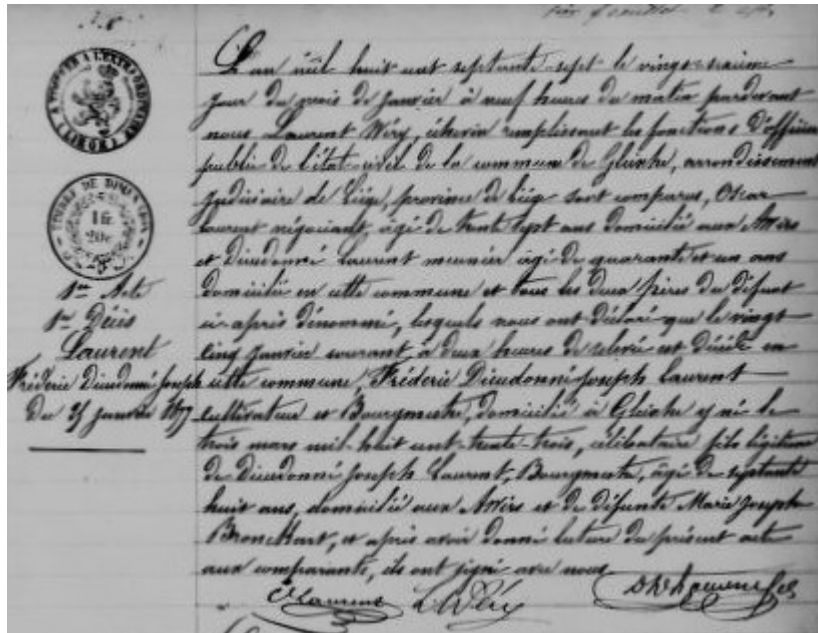 L'an mil huit cent septante-sept le vingt-sixième
jour du mois de janvier à neuf heures du matin pardevant
nous Laurent Wéry, échevin remplissant les fonctions d'officier
public de l'état-civil de la commune de Gleixhe, arrondissement
judiciaire de Liége, province de Liége sont comparus, Oscar
Laurent négociant, âgé de trente sept ans domicilié aux Awirs
et Dieudonné Laurent meunier âgé de quarante et un ans
domicilié en cette commune et tous les deux frères du défunt
ci-après dénommé, lesquels nous ont déclaré que le vingt
cinq janvier courant, à deux heures de relevée est décédé en
cette commune, Fréderic Dieudonné Joseph Laurent
cultivateur et Bourgmestre, domicilié à Gleixhe y né le
trois mars mil-huit cent-trente-trois, célibataire fils légitime
de Dieudonné Joseph Laurent, Bourgmestre, âgé de septante
huit ans, domicilié aux Awirs et de défunte Marie Joseph
Bronckart, et après avoir donné lecture du présent acte
aux comparants, ils ont signé avec nous
O Laurent L Wéry
TIMBRE DE DIMENSION
1 fr
20c
1er Acte
1er Décès
Laurent
Fréderic Dieudonné Joseph
Du 25 janvier 1877